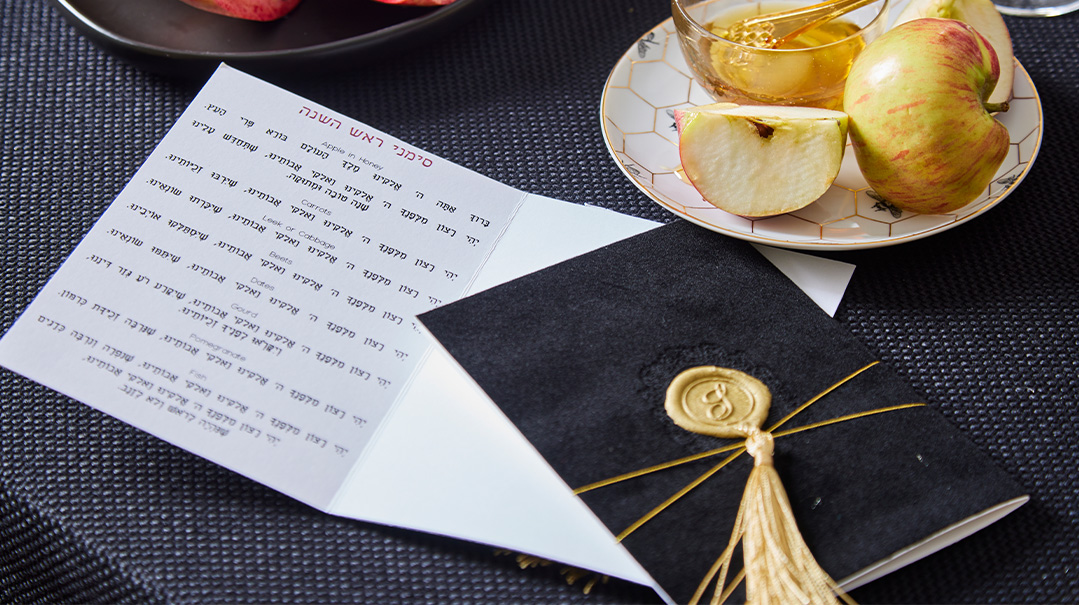 סימני ראש השנה
Apple in Honey
בָּרוּךְ אַתָּה ה' אֱלֹקֵינוּ מֶלֶךְ הָעוֹלָם בּוֹרֵא פְּרִי הָעֵץ.
יְהִי רָצוֹן מִלְּפָנֶךָ ה' אֱלֹקֵינוּ וֵאלֹקֵי אֲבוֹתֵינוּ, שֶׁתְּחַדֵּשׁ עָלֵינוּ
שָׁנָה טוֹבָה וּמְתוּקָה.
Carrots
יְהִי רָצוֹן מִלְּפָנֶךָ ה' אֱלֹקֵינוּ וֵאלֹקֵי אֲבוֹתֵינוּ, שֶׁיִּרְבּוּ זָכִיּוֹתֵינוּ.
Leek or Cabbage
יְהִי רָצוֹן מִלְּפָנֶךָ ה' אֱלֹקֵינוּ וֵאלֹקֵי אֲבוֹתֵינוּ, שֶׁיִּכָּרְתוּ שׂוֹנְאֵינוּ.
Beets
יְהִי רָצוֹן מִלְּפָנֶךָ ה' אֱלֹקֵינוּ וֵאלֹקֵי אֲבוֹתֵינוּ, שֶׁיִּסְתַּלְּקוּ אוֹיְבֵינוּ.
Dates
יְהִי רָצוֹן מִלְּפָנֶךָ ה' אֱלֹקֵינוּ וֵאלֹקֵי אֲבוֹתֵינוּ, שֶׁיִּתַּמּוּ שׂוֹנְאֵינוּ.
Gourd
יְהִי רָצוֹן מִלְּפָנֶךָ ה' אֱלֹקֵינוּ וֵאלֹקֵי אֲבוֹתֵינוּ, שֶׁיִּקָּרַע רֹעַ גְּזַר דִּינֵנוּ,
וְיִקָּרְאוּ לְפָנֶיךָ זָכִיּוֹתֵינוּ.
Pomegranate
יְהִי רָצוֹן מִלְּפָנֶךָ ה' אֱלֹקֵינוּ וֵאלֹקֵי אֲבוֹתֵינוּ, שֶׁנַּרְבֶּה זָכִיּוֹת כְּרִמּוֹן.
Fish
יְהִי רָצוֹן מִלְּפָנֶךָ ה' אֱלֹקֵינוּ וֵאלֹקֵי אֲבוֹתֵינוּ, שֶׁנִּפְרֶה וְנִרְבֶּה כַּדָּגִים
יְהִי רָצוֹן מִלְּפָנֶךָ ה' אֱלֹקֵינוּ וֵאלֹקֵי אֲבוֹתֵינוּ,
שֶׁנִּהְיֶה לְרֹאשׁ וְלֹא לְזָנָב.